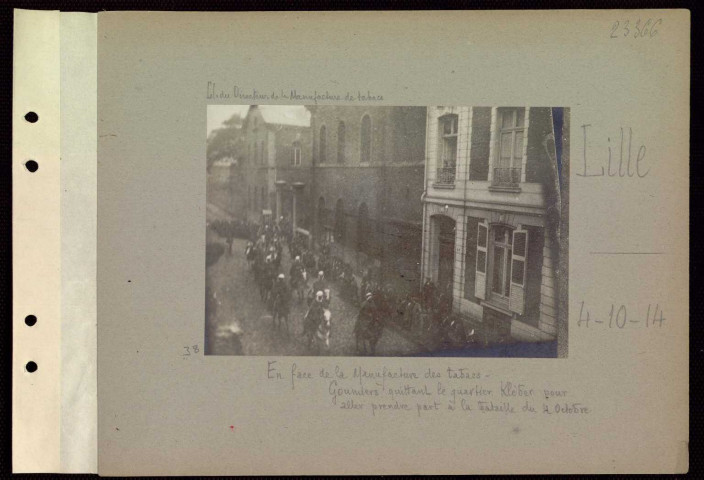 23366
Cl. du Directeur de la Manufacture de tabacs
Lille
4-10-14
38
En face de la Manufacture des tabacs -
Goumiers quittant le quartier Kléber pour
aller prendre part à la bataille du 4 Octobre